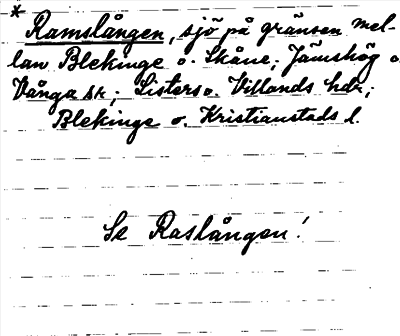 * Ramslången, sjö på gränsen mel-
lan Blekinge o. Skåne; Jämshög o
Vånga sn; Listers o. Villands hdr;
Blekinge o. Kristianstads l.
Se Raslången!